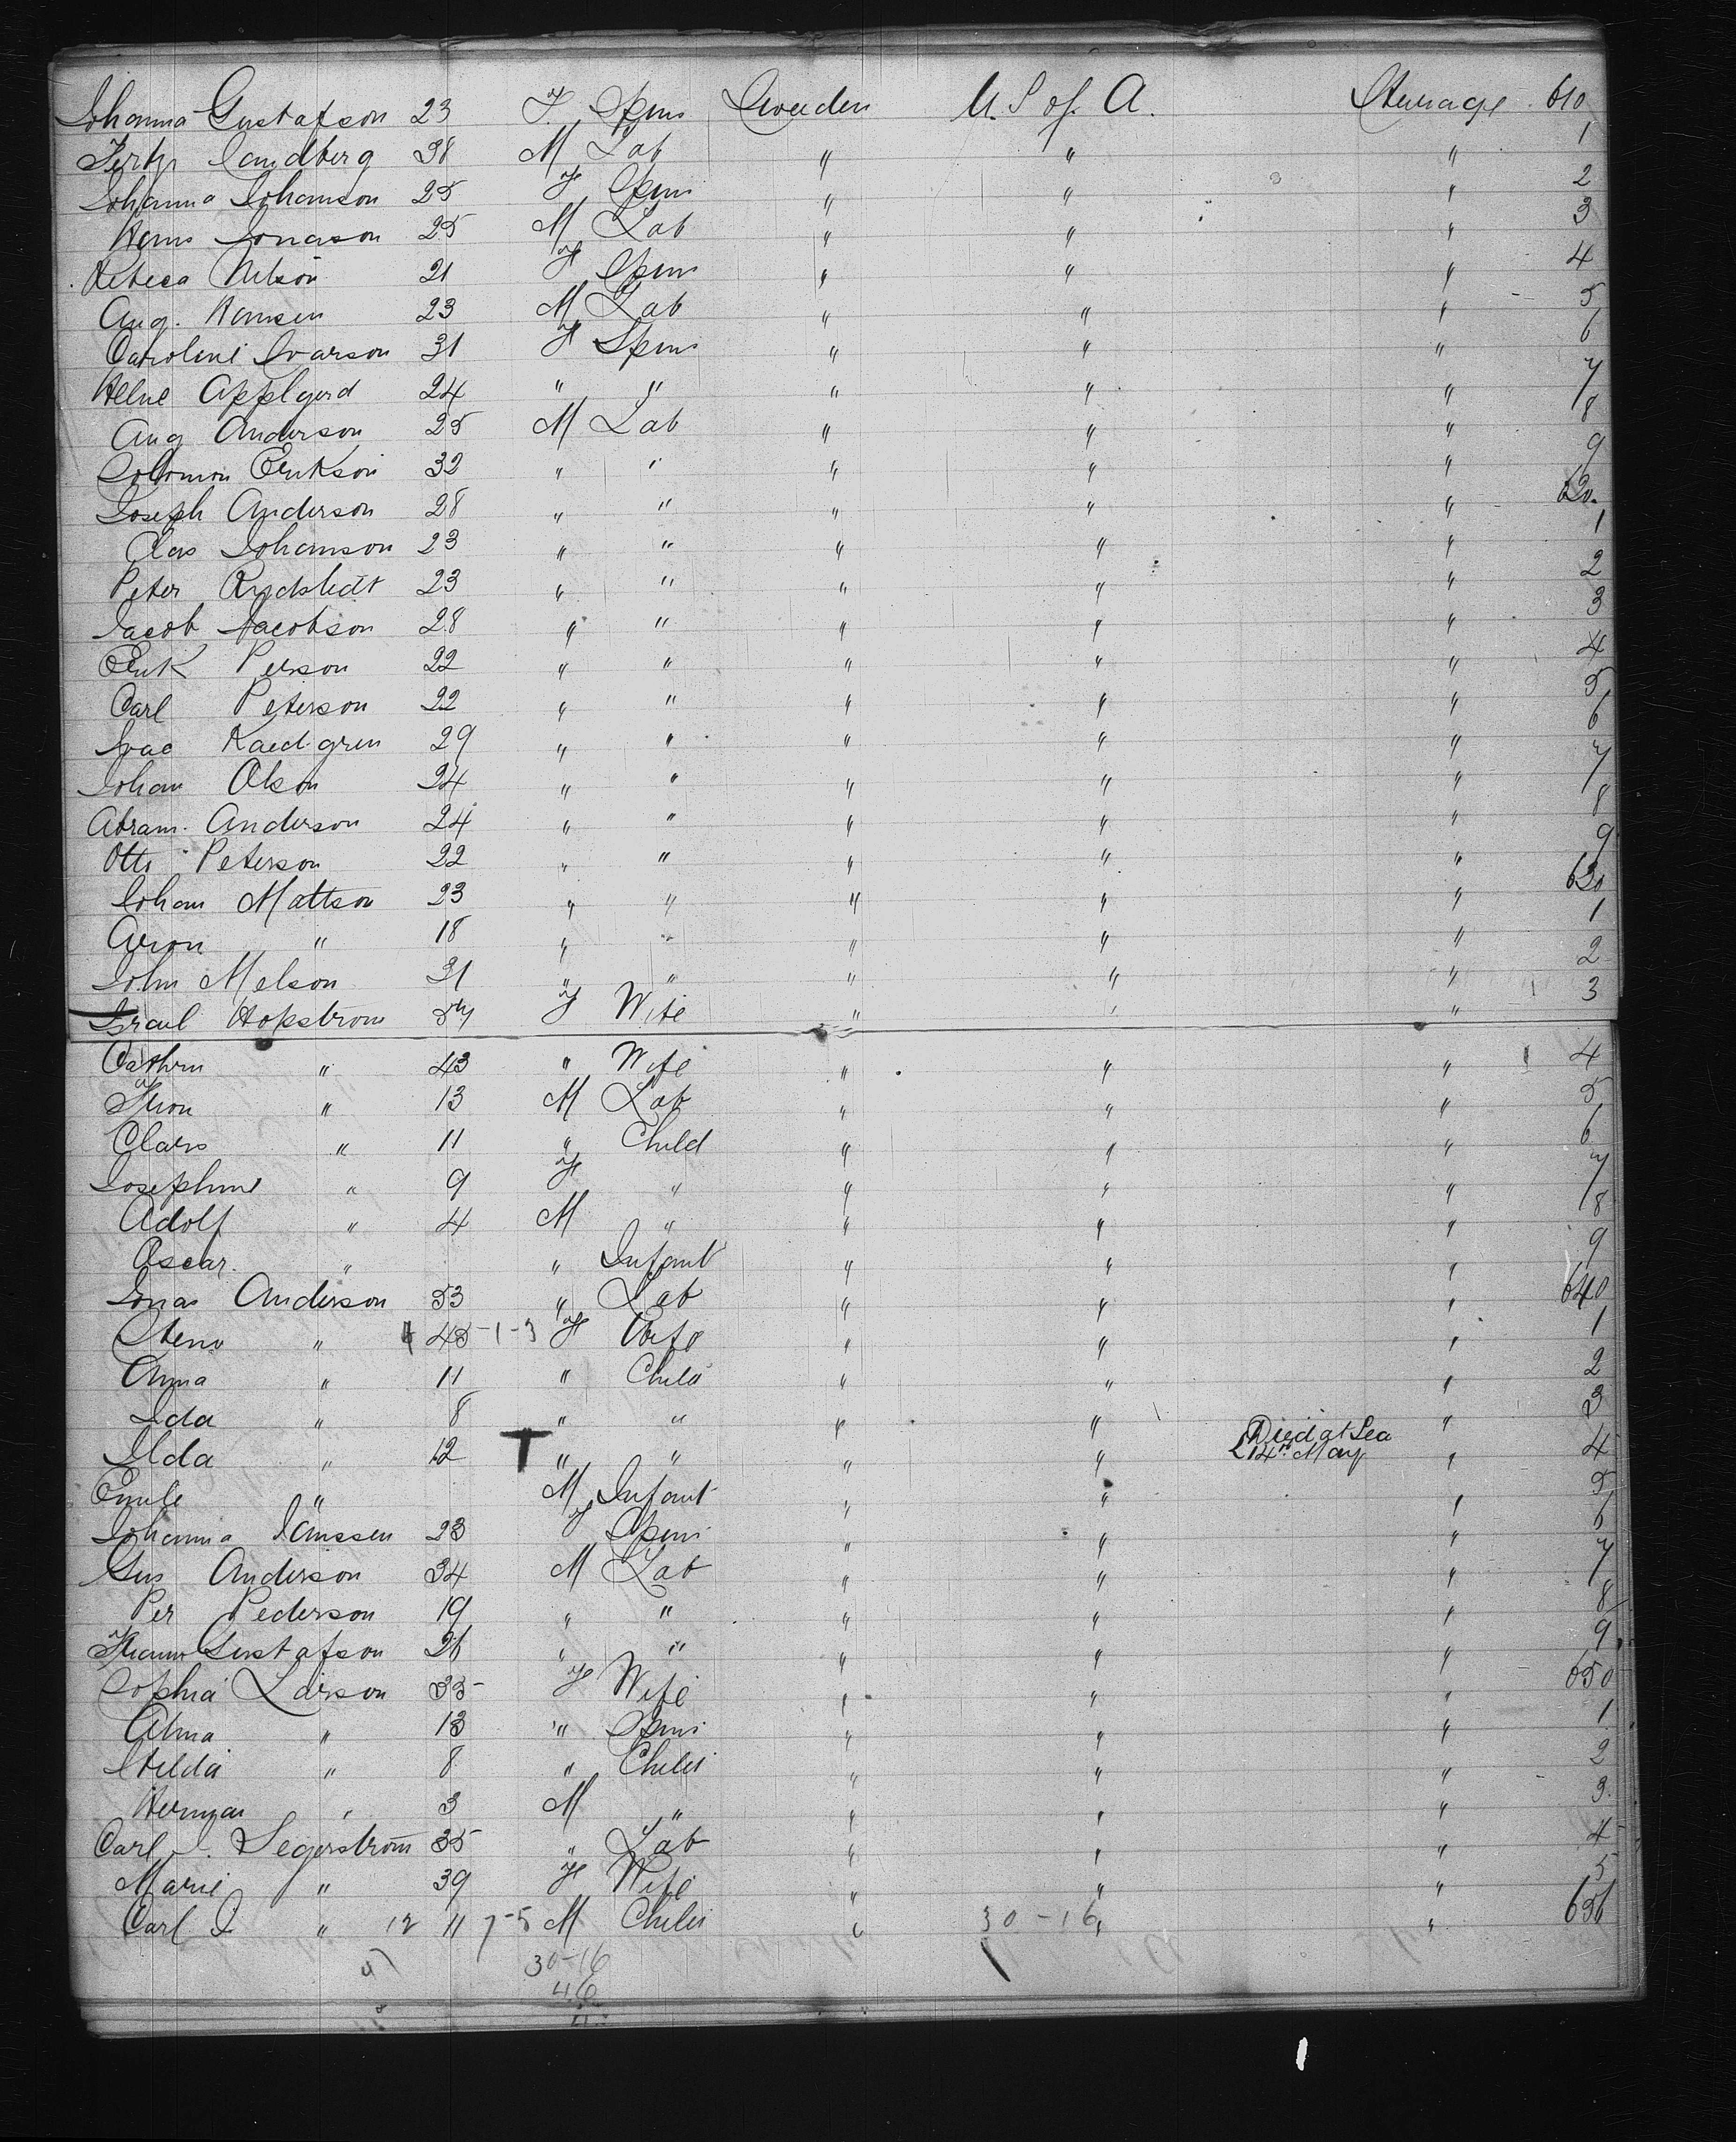 Johanna Gustafson 23 F. Spins Sweden U.S of. A. Steerage 610
Sandberg 38 M Lab " " " 1
Johanna Johanson 25 F Spins " " " 2
Hans Jonason 25 M Lab " " " 3
Rebeca Nelson 21 F Spins " " " 4
Aug. Hansen 23 M Lab " " " 5
Caroline Ivarson 31 F Spins " " " 6
Helne Applgerd 24 " " " " " 7
Aug Anderson 25 M Lab " " " 8
Solomon Erikson 32 " " " " " 9
Joseph Anderson 28 " " " " " 620.
Clas Johanson 23 " " " " " 1
Peter Rydstedt 23 " " " " " 2
Jacob Jacobson 28 " " " " " 3
Erik Person 22 " " " " " 4
Carl Peterson 22 " " " " " 5
Isac 29 " " " " " 6
Johan Olson 24 " " " " " 7
Abram. Anderson 24 " " " " " 8
Otto Peterson 22 " " " " " 9
Johan Mattson 23 " " " " " 630
Aron " 18 " " " " " 1
John Melson 31 " " " " " 2
Israel Hopstrom 57 F Wife " " " 3
Cathrn " 43 " Wife " " " 4
" 13 M Lab " " " 5
Clars " 11 " Child " " " 6
Josephine " 9 F " " " " 7
Adolf " 4 M " " " " 8
Oscar. " " Infant " " " 9
Jonas Anderson 53 " Lab " " " 640
Steno " 45-1-3 F Wife " " " 1
Anna " 11 " Child " " " 2
Ida " 8 " " " " " 3
Ilda " 12 T " " " " Died at Sea 14th May " 4
Emile " M Infant " " " 5
Johanna Janssen 23 F Spins " " " 6
Gus Anderson 34 M Lab " " " 7
Per Pederson 19 " " " " " 8
Gustafson 26 " " " " " 9
Sophia Larson 35 F Wife " " " 650
Alma " 13 " Spins " " " 1
Hilda " 8 " Child " " " 2
Herman " 3 M " " " " 3
Carl J. Segerstrom 35 " Lab " " " 4
Marie " 39 F Wife " " " 5
Carl J " 12 11 7-5 M Child " 30-16 " " 656
30-16
46